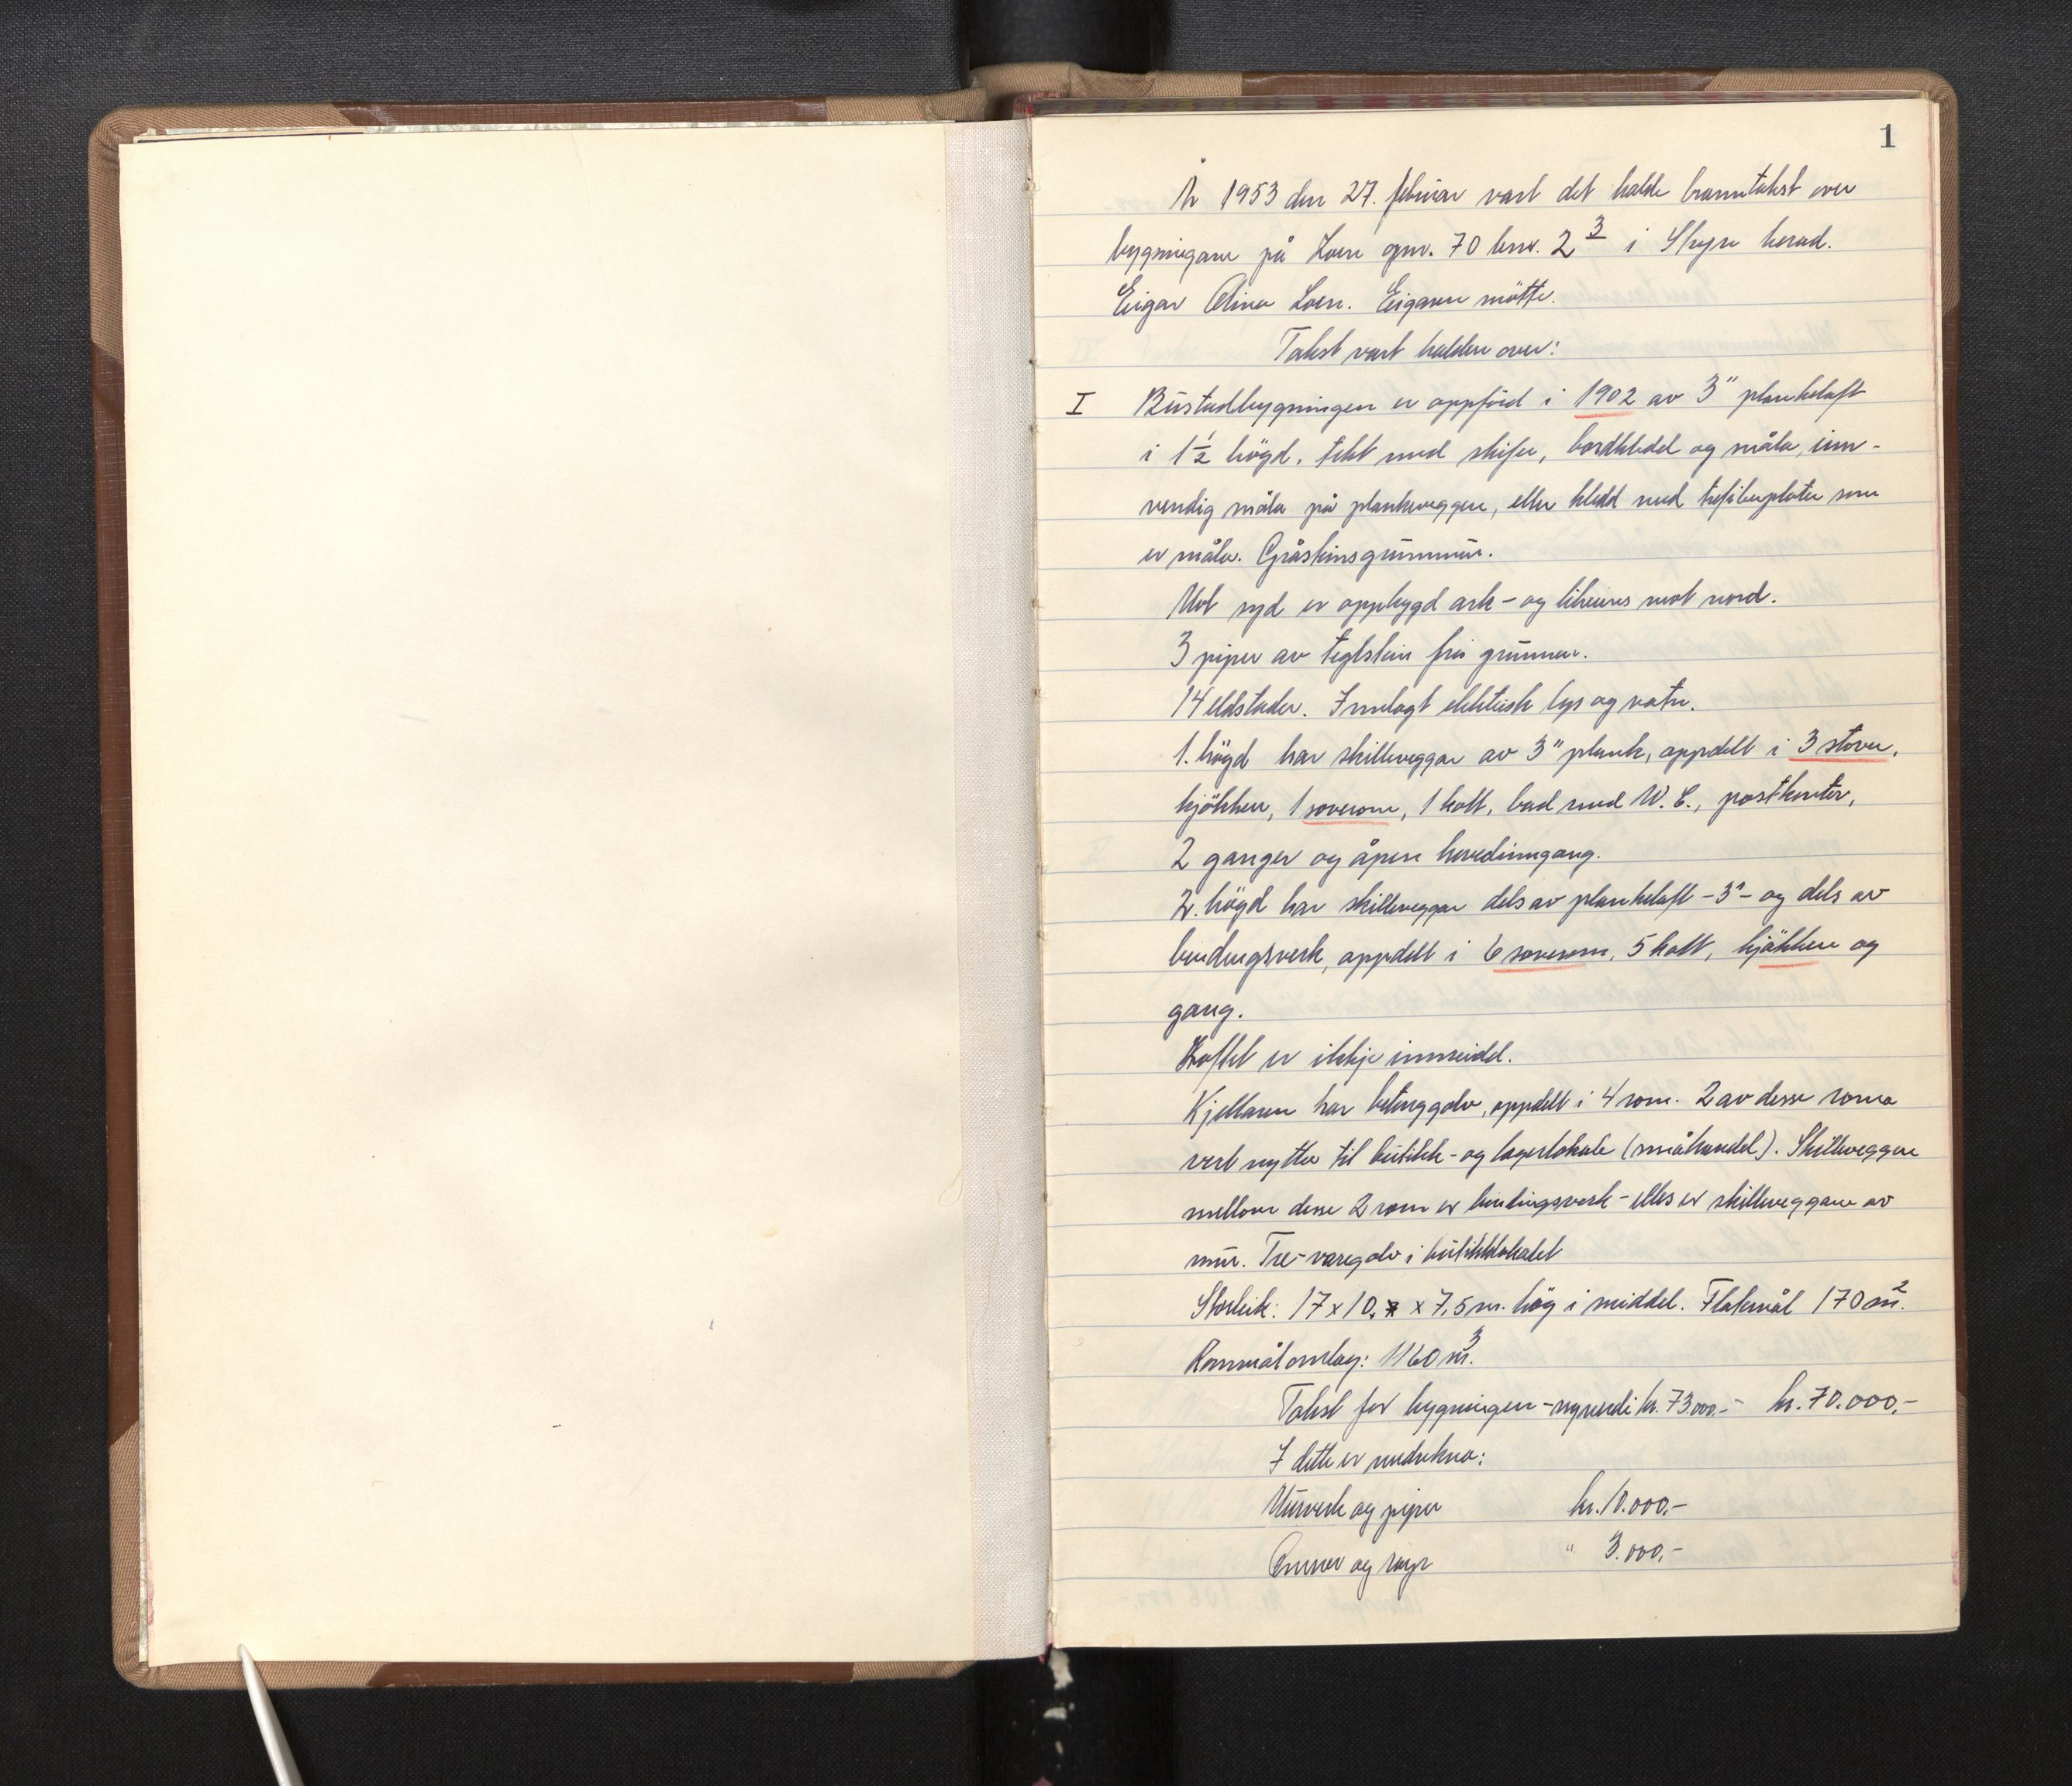 1
År 1953 den 27. februar vart det halde branntakst over
bygningane på Loen gnr. 70 bnr. 2 3 i Stryn herad.
Eigar Olina Loen. Eigaren møtte.
Takst vart halden over:
I Bustadbygningen er oppførd i 1902 av 3" plankelaft
i 1½ högd, tekt med skifer, bordkledd og måla, inn-
vendig måla på plankveggen, eller kledd med trefiberplater som
er måla. Gråsteinsgrunnmur.
Mot syd er oppbygd ark - og mot nord.
3 piper av teglstein frå grunnen.
14 eldstader. Innlagt elektrisk lys og vatn.
1. högd har skilleveggar av 3" plank, oppdelt i 3 stover,
kjökken, 1 soverom, 1 kott, bad med W.C., postkontor,
2 ganger og åpen hovedinngang.
2. högd har skilleveggar dels av plankelaft - 3" - og dels av
bindingsverk, oppdelt i 6 soverom, 5 kott, kjökken og
gang.
Loftet er ikkje innreidd.
Kjellaren har betonggolv, oppdelt i 4 rom. 2 av desse roma
vert nytta til butikk - og lagerlokale (småhandel). Skilleveggen
mellom desse 2 rom er bindingsverk - elles er skilleveggane av
mur. Tre-varegolv i butikklokalet
Storleik: 17 x 10, x 7,5 m. høg i middel. Flatemål 170 m².
Rommål omlag: 1160 m³.
Takst for bygningen - nyverdi kr. 73.000.- kr. 70.000.-
I dette er medrekna:
Murverk og piper kr. 10.000.-
Omner og røyr " 3.000.-